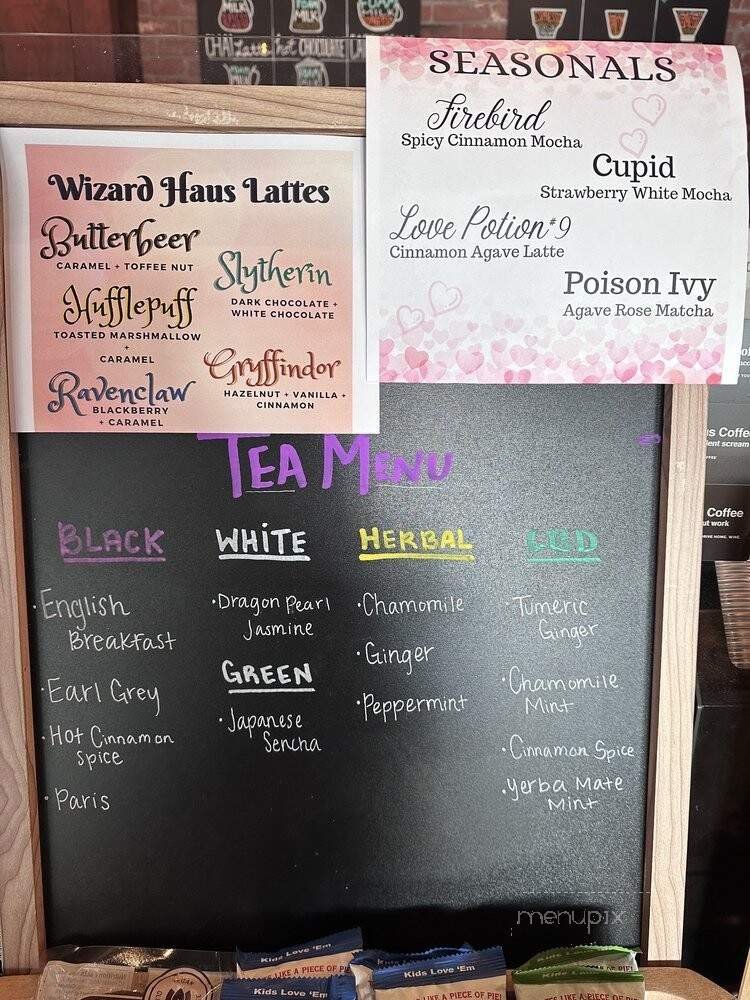 CHAI Latte hot CHOCOLATE
SEASONALS
Firebird
Spicy Cinnamon Mocha
Cupid
Strawberry White Mocha
Love Potion #9
Cinnamon Agave Latte
Poison Ivy
Agave Rose Matcha
Wizard Haus Lattes
Butterbeer
CARAMEL + TOFFEE NUT
Slytherin
DARK CHOCOLATE +
WHITE CHOCOLATE
Hufflepuff
TOASTED MARSHMALLOW
+
CARAMEL
Gryffindor
HAZELNUT + VANILLA +
CINNAMON
Ravenclaw
BLACKBERRY
+ CARAMEL
TEA MENU
BLACK
• English
Breakfast
• Earl Grey
• Hot Cinnamon
Spice
• Paris
WHITE
• Dragon Pearl
Jasmine
GREEN
• Japanese
Sencha
HERBAL
• Chamomile
• Ginger
• Peppermint
• Tumeric
Ginger
• Chamomile
Mint
• Cinnamon Spice
• Yerba Mate
Mint
Coffee
menupix
Kids Love 'Em
Kids Love 'Em
Kids Love 'Em
LIKE A PIECE OF PIE!